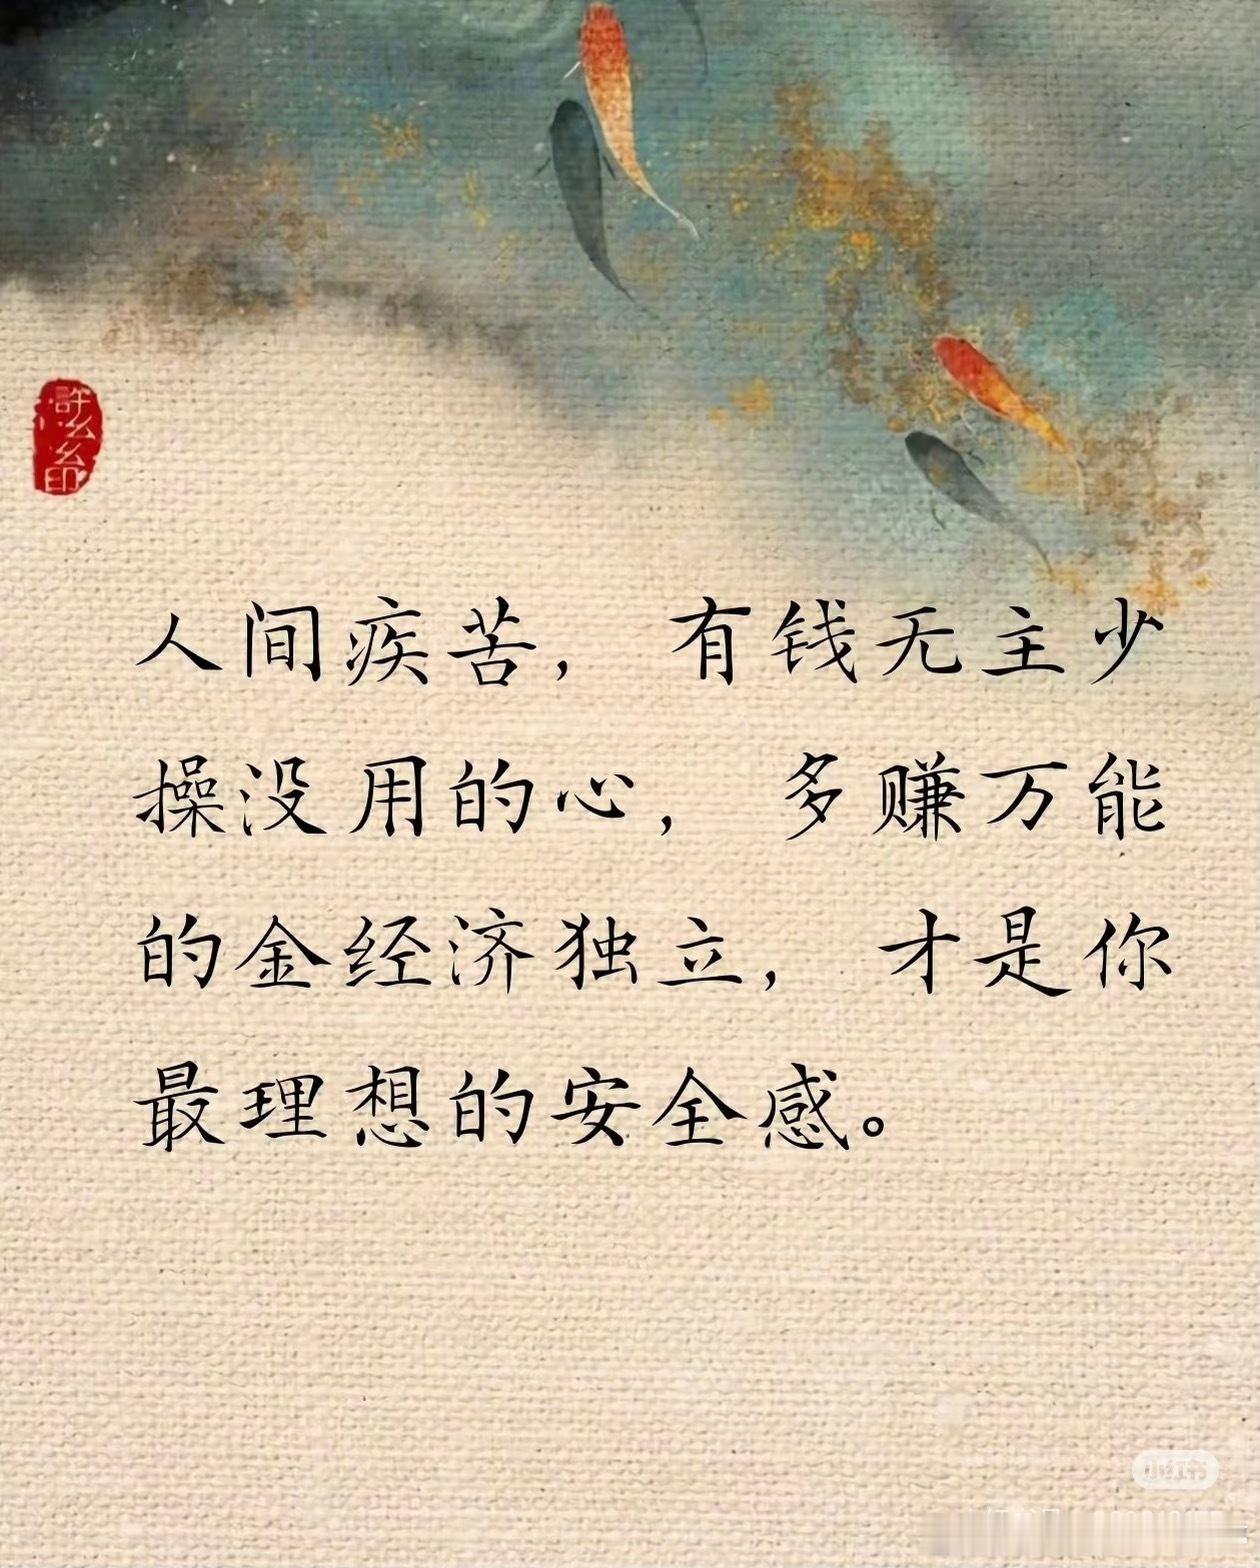 人间疾苦，有钱无主少
操没用的心，多赚万能
的金经济独立，才是你
最理想的安全感。
小红书